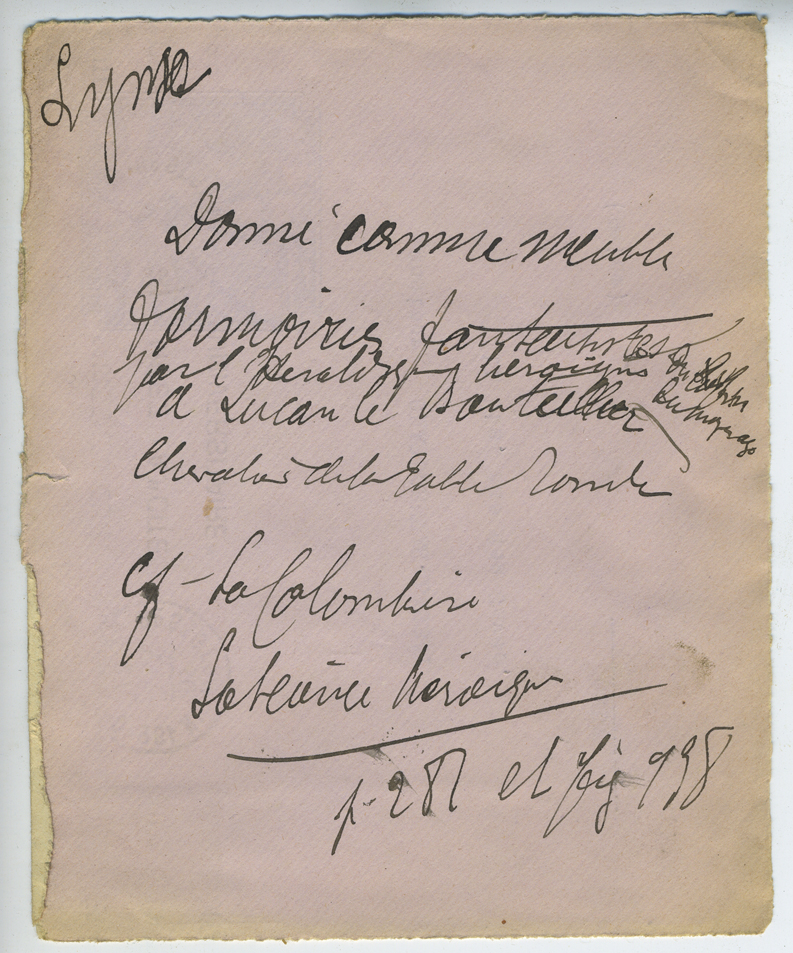 Lynx
Donné comme meuble
d'armoiries fantaisistes
par l'Heraldique heroique du
à Lucan le Bouteiller
Chevalier de la Table Ronde
cf - La Colombière
La Science Heroique
p. 287 et fig 198